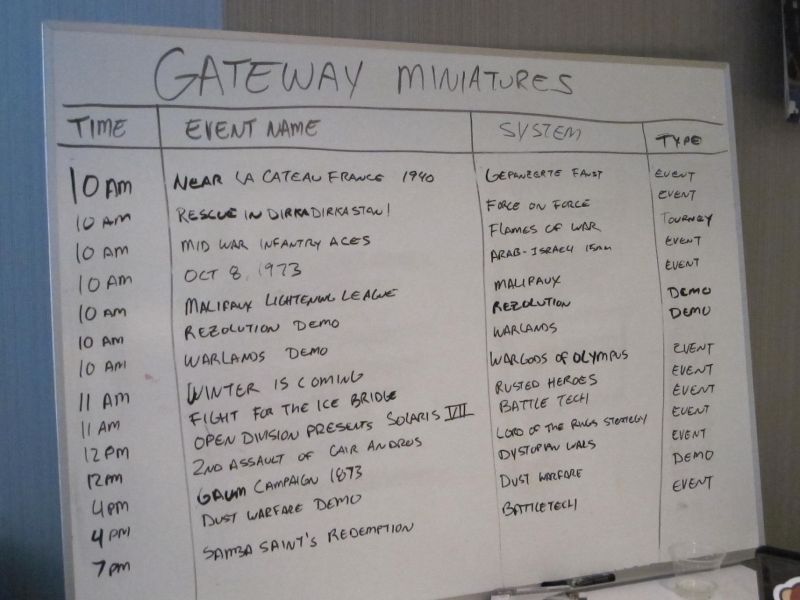 GATEWAY MINIATURES
TIME EVENT NAME SYSTEM TYPE
10 AM NEAR LA CATEAU FRANCE 1940 GEPANZERTE FAUST EVENT
10 AM RESCUE IN DIRKADIRKASTAN! FORCE ON FORCE EVENT
10 AM MID WAR INFANTRY ACES FLAMES OF WAR TOURNEY
10 AM OCT 8, 1973 ARAB-ISRAELI 15MM EVENT
10 AM MALIFAUX LIGHTENING LEAGUE MALIFAUX EVENT
10 AM REZOLUTION DEMO REZOLUTION DEMO
10 AM WARLANDS DEMO WARLANDS DEMO
11 AM WINTER IS COMING WARGODS OF OLYMPUS EVENT
11 AM FIGHT FOR THE ICE BRIDGE RUSTED HEROES EVENT
12 PM OPEN DIVISION PRESENTS SOLARIS VII BATTLE TECH EVENT
12PM 2ND ASSAULT OF CAIR ANDROS LORD OF THE RINGS STRATEGY EVENT
4PM CAMPAIGN 1873 DYSTOPIAN WARS EVENT
4 PM DUST WARFARE DEMO DUST WARFARE DEMO
7PM SAMBA SAINT'S REDEMPTION BATTLETECH EVENT